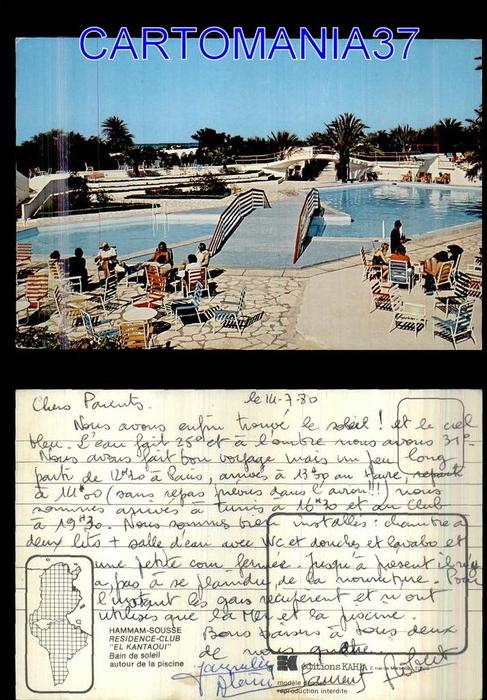 CARTOMANIA37
Chers Parents.
le 14-7-80
Nous avons enfin trouvé le soleil ! et le ciel
bleu. L'eau fait 25° et à l'ombre nous avons 31°.
Nous avons fait bon voyage mais un peu long
partir de 12H20 à Paris, arrivés à 13H00 au Havre, repartir
à 14H00 (sans repas prévus dans l'avion!!) nous
sommes arrivés à Tunis à 16H30 et au Club
à 19H30. Nous sommes bien installés : chambre à
deux lits + salle d'eau avec WC et douches et lavabo et
une petite cour fermée. Jusqu'à présent il n'y
a pas à se plaindre de la nourriture. Pour
l'instant les gars récupèrent et n'ont
utilisés que la Mer et la piscine.
Bons baisers à tous deux
de nous quatre.
HAMMAM-SOUSSE
RESIDENCE-CLUB
"EL KANTAOUI"
Bain de soleil
autour de la piscine
éditions KAHIA
modèle déposé
reproduction interdite
Laurent